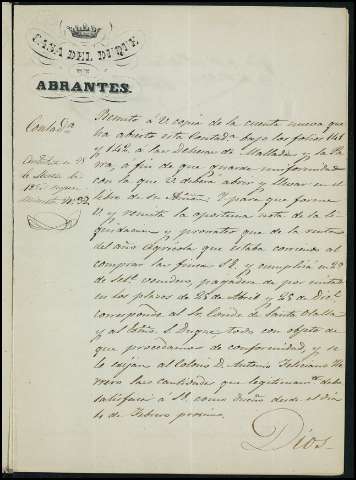 CASA DEL DUQUE
DE
ABRANTES.
Contad.ª
Remito a V. copia de la cuenta nueva que
ha abierto esta Contad.ª bajo los folios 141
y 142, a las Dehesas de Mallada y la
a fin de que guarde uniformidad
con la que V. deberá abrir y llevar en el
libro de su Admón. Y para que forme
V. y remita la oportuna nota de la li-
quidacion y prorrateo que de la renta
del año Agricola que estaba corriendo al
comprar las fincas S.E. y cumplirá en 29
de set.e venidero, pagadera por mitad
en los plazos de 25 de Abril y 25 de Dic.e
corresponde al Sr. Conde de Santa Olalla
y al Exmo. S. Duque todo con objeto de
que procedamos de conformidad, y se
le exijan al Colono D. Antonio Feliciano Ro-
mero las cantidades que legitimam.te deba
satisfacer a S.E. como dueño desde el dia
14 de Febrero proximo
Dios